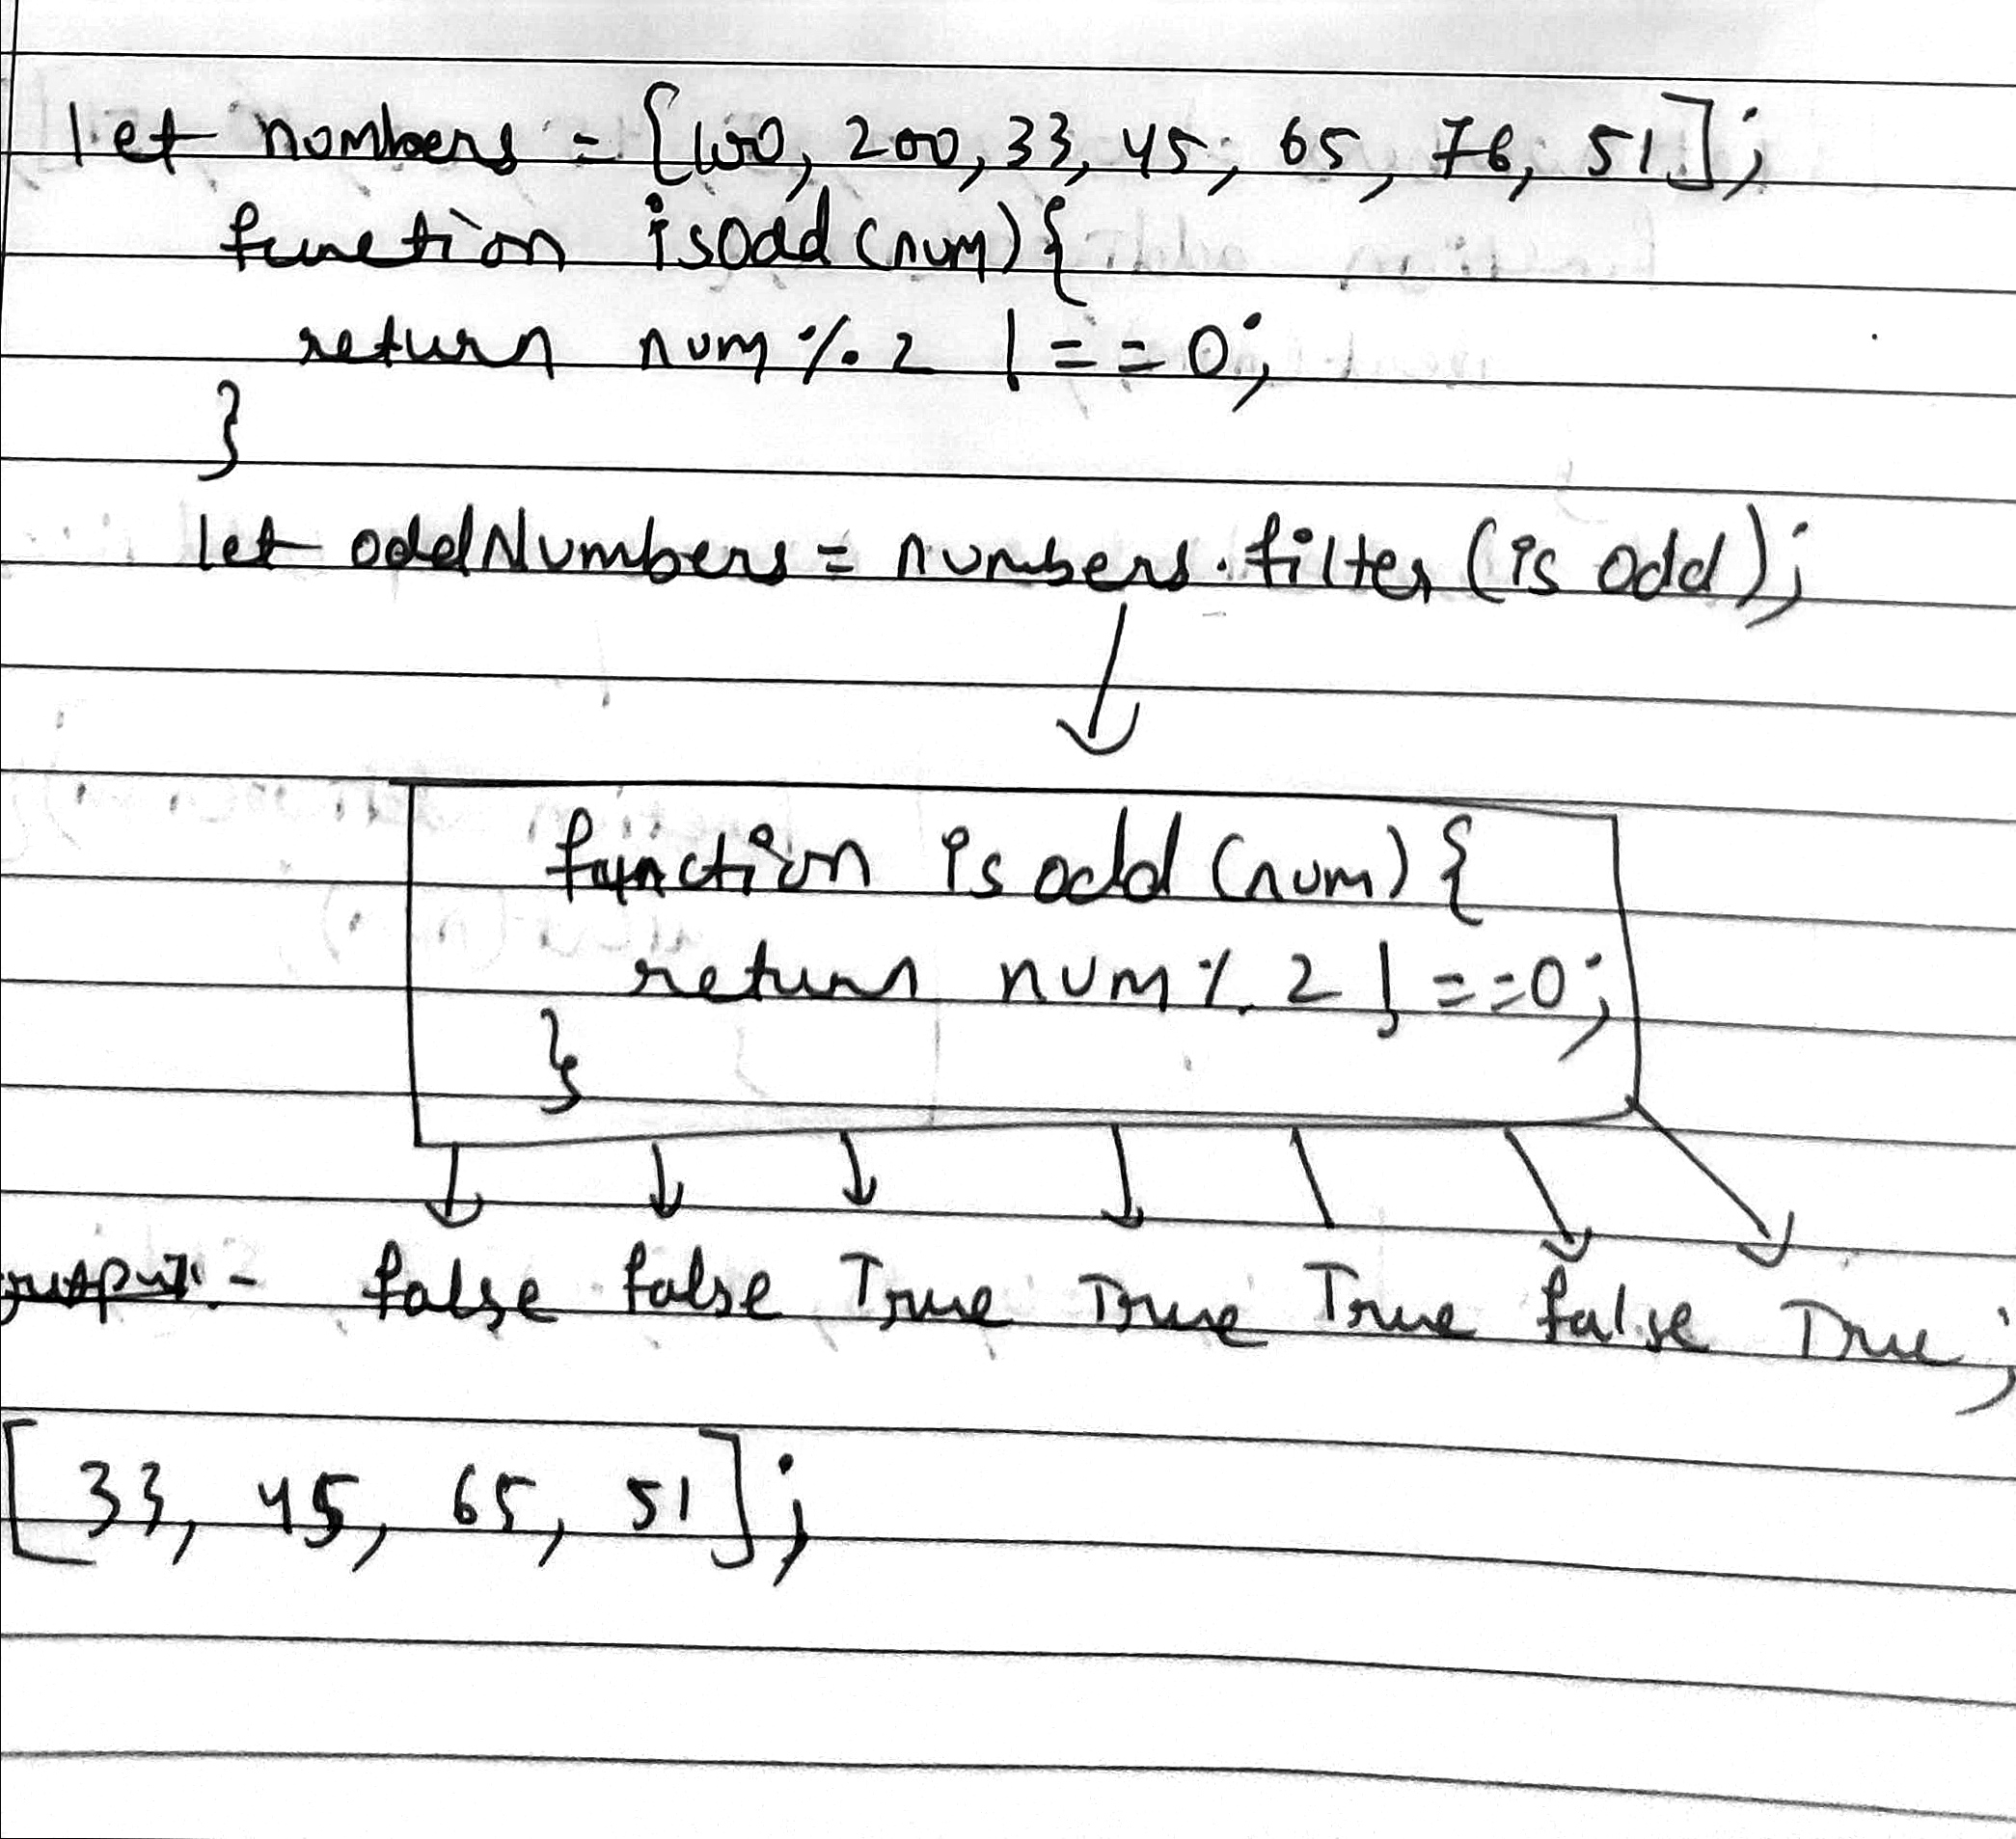 let nombers = {100, 200, 33, 45, 65, 76, 51];
function isodd (num) {
return num % 2 !== 0;
}
let oddNumbers = numbers.filter (is odd);
function is odd (num) {
return num % 2 !== 0;
}
output:- false false True True True false True;
[33, 45, 65, 51];